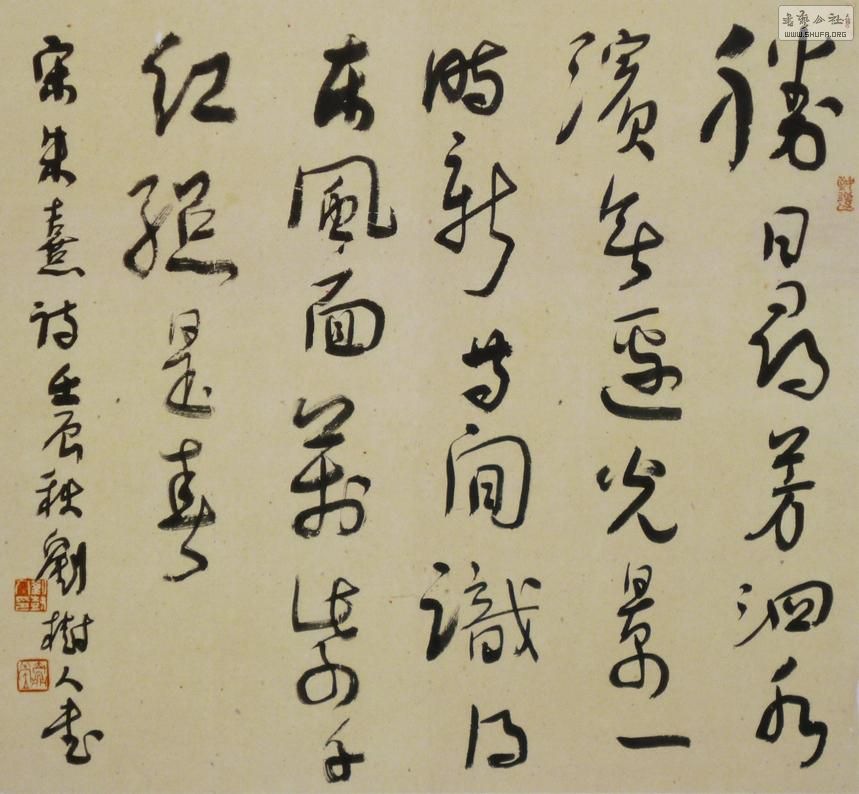 勝日尋芳泗水
濱無邊光景一
時新等間識得
東風面萬紫千
紅總是春
宋朱熹詩壬辰秋劉樹人書
WWW.SHUFA.ORG